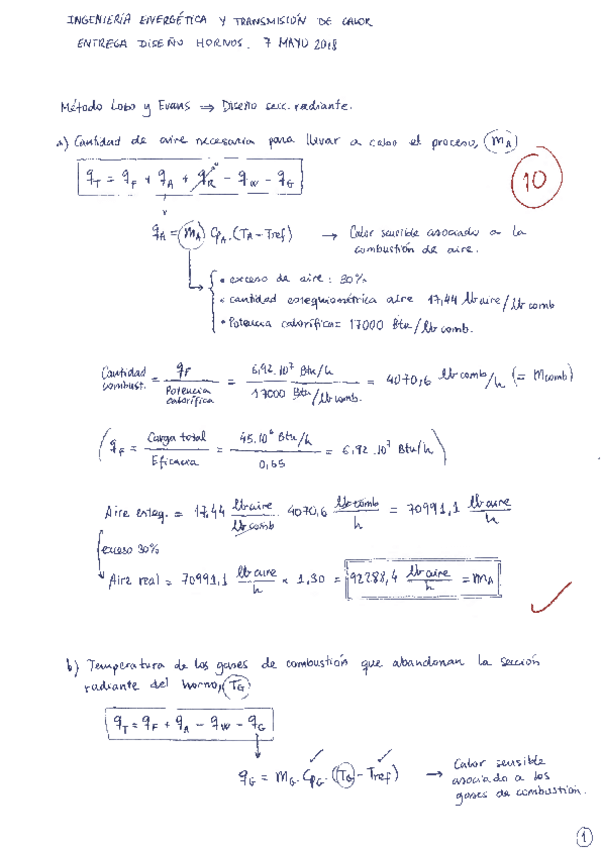 INGENIERÍA ENERGÉTICA Y TRANSMISIÓN DE CALOR
ENTREGA DISEÑO HORNOS. 7 MAYO 2018
Método Lobo y Evans ⇒ Diseño secc. radiante.
a) Cantidad de aire necesaria para llevar a cabo el proceso, (mA)
10
qT = qF + qA + qR - qW - qG
qA = mA CPA · (TA - Tref) → Calor sensible asociado a la
combustión de aire.
• exceso de aire: 30%
• cantidad estequiométrica aire 17,44 lb aire / lb comb
• Potencia calorífica = 17000 Btu / lb comb.
Cantidad combust. = qF / Potencia calorífica = 6,92·10⁷ Btu/h / 17000 Btu/lb comb. = 4070,6 lb comb/h (= mcomb)
(qF = Carga total / Eficacia = 45·10⁶ Btu/h / 0,65 = 6,92·10⁷ Btu/h)
Aire esteq. = 17,44 lb aire / lb comb · 4070,6 lb comb / h = 70991,1 lb aire / h
exceso 30%
Aire real = 70991,1 lb aire / h × 1,30 = 92288,4 lb aire / h = mA
b) Temperatura de los gases de combustión que abandonan la sección
radiante del horno, (TG)
qT = qF + qA - qW - qG
qG = mG · CPG · (TG - Tref) → Calor sensible
asociado a los
gases de combustión.
1